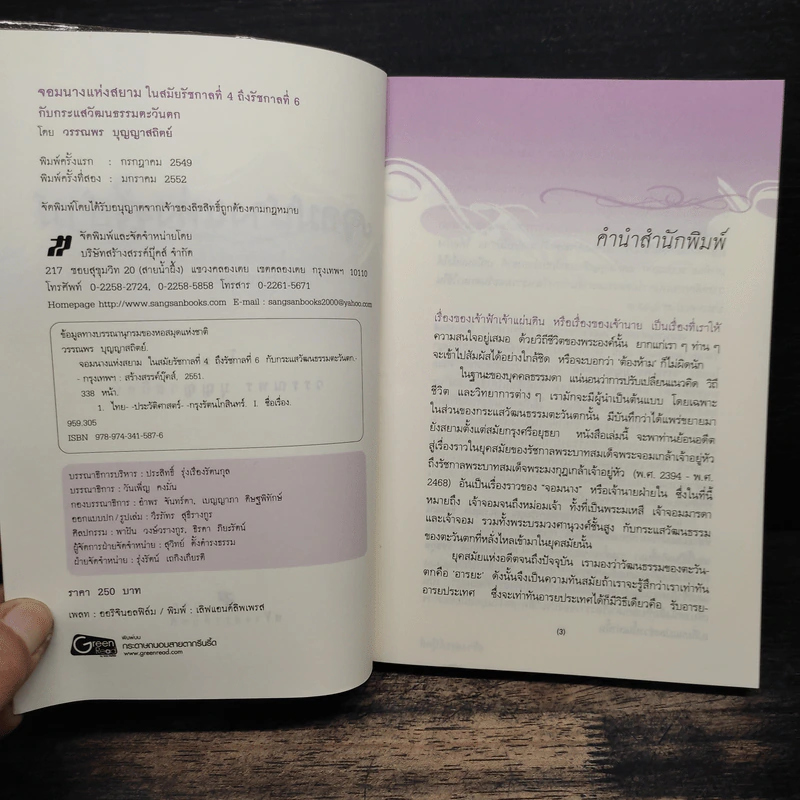 จอมนางแห่งสยาม ในสมัยรัชกาลที่ 4 ถึงรัชกาลที่ 6
กับกระแสวัฒนธรรมตะวันตก
โดย วรรณพร บุญญาสถิตย์
พิมพ์ครั้งแรก : กรกฎาคม 2549
พิมพ์ครั้งที่สอง : มกราคม 2552
จัดพิมพ์โดยได้รับอนุญาตจากเจ้าของลิขสิทธิ์ถูกต้องตามกฎหมาย
จัดพิมพ์และจัดจำหน่ายโดย
บริษัทสร้างสรรค์บุ๊คส์ จำกัด
217 ซอยสุขุมวิท 20 (สายน้ำผึ้ง) แขวงคลองเตย เขตคลองเตย กรุงเทพฯ 10110
โทรศัพท์ 0-2258-2724, 0-2258-5858 โทรสาร 0-2261-5671
Homepage http://www.sangsanbooks.com E-mail : sangsanbooks2000@yahoo.com
ข้อมูลทางบรรณานุกรมของหอสมุดแห่งชาติ
วรรณพร บุญญาสถิตย์.
จอมนางแห่งสยาม ในสมัยรัชกาลที่ 4 ถึงรัชกาลที่ 6 กับกระแสวัฒนธรรมตะวันตก.-
- กรุงเทพฯ : สร้างสรรค์บุ๊คส์, 2551.
338 หน้า.
1. ไทย- -ประวัติศาสตร์- -กรุงรัตนโกสินทร์. I. ชื่อเรื่อง.
959.305
ISBN 978-974-341-587-6
บรรณาธิการบริหาร : ประสิทธิ์ รุ่งเรืองรัตนกุล
บรรณาธิการ : วันเพ็ญ คงมั่น
กองบรรณาธิการ : อำพร จันทร์ดา, เบญญาภา ดิษฐพิทักษ์
ออกแบบปก / รูปเล่ม : วีรภัทร สุธีรางกูร
ศิลปกรรม : พานัน วงษ์วรางกูร, ธีรดา ภิยะรัตน์
ผู้จัดการฝ่ายจัดจำหน่าย : สุวิทย์ ตั้งดำรงธรรม
ฝ่ายจัดจำหน่าย : รุ่งรัตน์ เถกิงเกียรติ
ราคา 250 บาท
เพลท : ออริจินอลฟิล์ม / พิมพ์ : เลิฟแอนด์ลิพเพรส
Green Read
พิมพ์บน
กระดาษถนอมสายตากรีนรี้ด
www.greenread.com
คำนำสำนักพิมพ์
เรื่องของเจ้าฟ้าเจ้าแผ่นดิน หรือเรื่องของเจ้านาย เป็นเรื่องที่เราให้
ความสนใจอยู่เสมอ ด้วยวิถีชีวิตของพระองค์นั้น ยากแก่เรา ๆ ท่าน ๆ
จะเข้าไปสัมผัสได้อย่างใกล้ชิด หรือจะบอกว่า 'ต้องห้าม' ก็ไม่ผิดนัก
ในฐานะของบุคคลธรรมดา แน่นอนว่าการปรับเปลี่ยนแนวคิด วิถี
ชีวิต และวิทยาการต่าง ๆ เรามักจะมีผู้นำเป็นต้นแบบ โดยเฉพาะ
ในส่วนของกระแสวัฒนธรรมตะวันตกนั้น มีบันทึกว่าได้แพร่ขยายมา
ยังสยามตั้งแต่สมัยกรุงศรีอยุธยา หนังสือเล่มนี้ จะพาท่านย้อนอดีต
สู่เรื่องราวในยุคสมัยของรัชกาลพระบาทสมเด็จพระจอมเกล้าเจ้าอยู่หัว
ถึงรัชกาลพระบาทสมเด็จพระมงกุฎเกล้าเจ้าอยู่หัว (พ.ศ. 2394 - พ.ศ.
2468) อันเป็นเรื่องราวของ "จอมนาง" หรือเจ้านายฝ่ายใน ซึ่งในที่นี้
หมายถึง เจ้าจอมจนถึงหม่อมเจ้า ทั้งที่เป็นพระมเหสี เจ้าจอมมารดา
และเจ้าจอม รวมทั้งพระบรมวงศานุวงศ์ชั้นสูง กับกระแสวัฒนธรรม
ของตะวันตกที่หลั่งไหลเข้ามาในยุคสมัยนั้น
ยุคสมัยแห่งอดีตจนถึงปัจจุบัน เรามองว่าวัฒนธรรมของตะวัน-
ตกคือ 'อารยะ' ดังนั้นจึงเป็นความทันสมัยถ้าเราจะรู้สึกว่าเราเท่าทัน
อารยประเทศ ซึ่งจะเท่าทันอารยประเทศได้ก็มีวิธีเดียวคือ รับอารย-
(3)